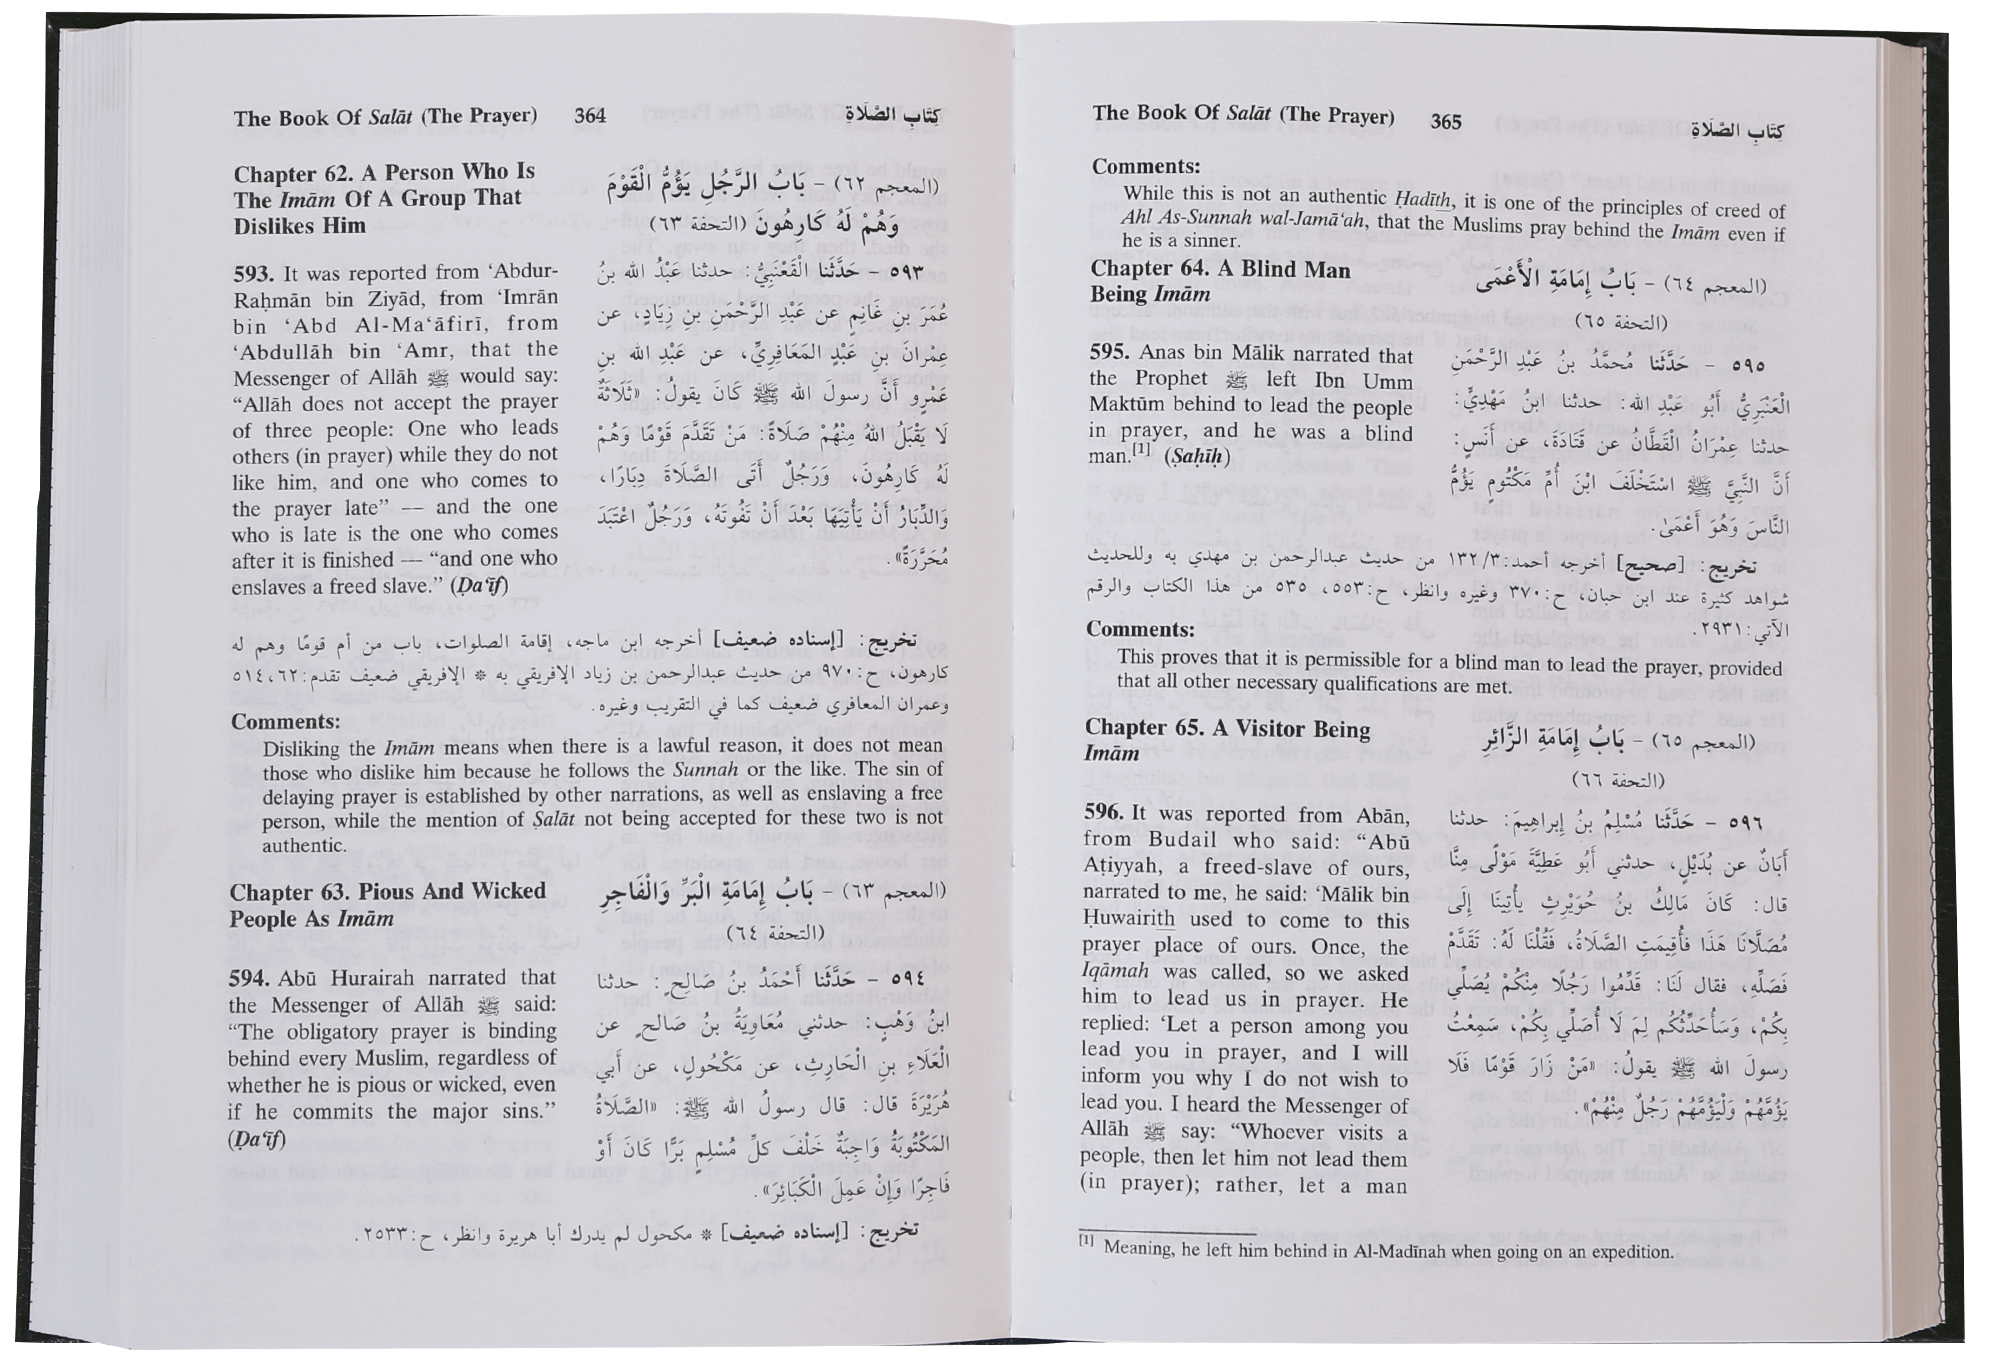 The Book Of Salāt (The Prayer) 364 كِتَابِ الصَّلَاةِ
Chapter 62. A Person Who Is
The Imām Of A Group That
Dislikes Him
(المعجم ٦٢) - بَابُ الرَّجُلِ يَؤُمُّ الْقَوْمَ
وَهُمْ لَهُ كَارِهُونَ (التحفة ٦٣)
593. It was reported from ‘Abdur-
Raḥmān bin Ziyād, from ‘Imrān
bin ‘Abd Al-Ma‘āfirī, from
‘Abdullāh bin ‘Amr, that the
Messenger of Allāh ﷺ would say:
“Allāh does not accept the prayer
of three people: One who leads
others (in prayer) while they do not
like him, and one who comes to
the prayer late” — and the one
who is late is the one who comes
after it is finished — “and one who
enslaves a freed slave.” (Ḍa‘īf)
٥٩٣ - حَدَّثَنا الْقَعْنَبِيُّ: حدثنا عَبْدُ الله بنُ
عُمَرَ بنِ غَانِمٍ عن عَبْدِ الرَّحْمَنِ بنِ زِيَادٍ، عن
عِمْرانَ بنِ عَبْدٍ المَعَافِرِيِّ، عن عَبْدِ الله بنِ
عَمْرٍو أَنَّ رسولَ الله ﷺ كَانَ يقولُ: «ثَلَاثَةٌ
لَا يَقْبَلُ اللهُ مِنْهُمْ صَلَاةً: مَنْ تَقَدَّمَ قَوْمًا وَهُمْ
لَهُ كَارِهُونَ، وَرَجُلٌ أَتَى الصَّلَاةَ دِبَارًا،
وَالدِّبَارُ أَنْ يَأْتِيَهَا بَعْدَ أَنْ تَفُوتَهُ، وَرَجُلٌ اعْتَبَدَ
مُحَرَّرَةً».
تخريج: [إسناده ضعيف] أخرجه ابن ماجه، إقامة الصلوات، باب من أم قومًا وهم له
كارهون، ح:٩٧٠ من حديث عبدالرحمن بن زياد الإفريقي به * الإفريقي ضعيف تقدم:٦٢، ٥١٤
وعمران المعافري ضعيف كما في التقريب وغيره.
Comments:
Disliking the Imām means when there is a lawful reason, it does not mean
those who dislike him because he follows the Sunnah or the like. The sin of
delaying prayer is established by other narrations, as well as enslaving a free
person, while the mention of Ṣalāt not being accepted for these two is not
authentic.
Chapter 63. Pious And Wicked
People As Imām
(المعجم ٦٣) - بَابُ إِمَامَةِ الْبَرِّ وَالْفَاجِرِ
(التحفة ٦٤)
594. Abū Hurairah narrated that
the Messenger of Allāh ﷺ said:
“The obligatory prayer is binding
behind every Muslim, regardless of
whether he is pious or wicked, even
if he commits the major sins.”
(Ḍa‘īf)
٥٩٤ - حَدَّثَنا أَحْمَدُ بنُ صَالحٍ: حدثنا
ابنُ وَهْبٍ: حدثني مُعَاوِيَةُ بنُ صَالحٍ عن
الْعَلَاءِ بنِ الْحَارِثِ، عن مَكْحُولٍ، عن أَبي
هُرَيْرَةَ قال: قال رسولُ الله ﷺ: «الصَّلَاةُ
المَكْتُوبَةُ وَاجِبَةٌ خَلْفَ كلِّ مُسْلِمٍ بَرًّا كَانَ أَوْ
فَاجِرًا وَإِنْ عَمِلَ الْكَبَائِرَ».
تخريج: [إسناده ضعيف] * مكحول لم يدرك أبا هريرة وانظر، ح:٢٥٣٣.
The Book Of Salāt (The Prayer) 365 كِتَابِ الصَّلَاةِ
Comments:
While this is not an authentic Ḥadīth, it is one of the principles of creed of
Ahl As-Sunnah wal-Jamā‘ah, that the Muslims pray behind the Imām even if
he is a sinner.
Chapter 64. A Blind Man
Being Imām
(المعجم ٦٤) - بَابُ إِمَامَةِ الْأَعْمَى
(التحفة ٦٥)
595. Anas bin Mālik narrated that
the Prophet ﷺ left Ibn Umm
Maktūm behind to lead the people
in prayer, and he was a blind
man.[1] (Ṣaḥīḥ)
٥٩٥ - حَدَّثَنا مُحمَّدُ بنُ عَبْدِ الرَّحْمَنِ
الْعَنْبَرِيُّ أَبُو عَبْدِ الله: حدثنا ابنُ مَهْدِيٍّ:
حدثنا عِمْرَانُ الْقَطَّانُ عن قَتَادَةَ، عن أَنَسٍ:
أَنَّ النَّبِيَّ ﷺ اسْتَخْلَفَ ابْنَ أُمِّ مَكْتُومٍ يَؤُمُّ
النَّاسَ وَهُوَ أَعْمَىٰ.
تخريج: [صحيح] أخرجه أحمد:٣/ ١٣٢ من حديث عبدالرحمن بن مهدي به وللحديث
شواهد كثيرة عند ابن حبان، ح:٣٧٠ وغيره وانظر، ح:٥٥٣، ٥٣٥ من هذا الكتاب والرقم
الآتي:٢٩٣١.
Comments:
This proves that it is permissible for a blind man to lead the prayer, provided
that all other necessary qualifications are met.
Chapter 65. A Visitor Being
Imām
(المعجم ٦٥) - بَابُ إِمَامَةِ الزَّائِرِ
(التحفة ٦٦)
596. It was reported from Abān,
from Budail who said: “Abū
Aṭiyyah, a freed-slave of ours,
narrated to me, he said: ‘Mālik bin
Ḥuwairith used to come to this
prayer place of ours. Once, the
Iqāmah was called, so we asked
him to lead us in prayer. He
replied: ‘Let a person among you
lead you in prayer, and I will
inform you why I do not wish to
lead you. I heard the Messenger of
Allāh ﷺ say: “Whoever visits a
people, then let him not lead them
(in prayer); rather, let a man
٥٩٦ - حَدَّثَنا مُسْلِمُ بنُ إبراهِيمَ: حدثنا
أَبَانٌ عن بُدَيْلٍ، حدثني أَبُو عَطِيَّةَ مَوْلًى مِنَّا
قال: كَانَ مَالِكُ بنُ حُوَيْرِثٍ يأْتِينَا إِلَى
مُصَلَّانَا هَذَا فأُقِيمَتِ الصَّلَاةُ، فَقُلْنَا لَهُ: تَقَدَّمْ
فَصَلِّهِ، فقال لَنَا: قَدِّمُوا رَجُلًا مِنْكُمْ يُصَلِّي
بِكُمْ، وَسَأُحَدِّثُكُم لِمَ لَا أُصَلِّي بِكُمْ، سَمِعْتُ
رسولَ الله ﷺ يقولُ: «مَنْ زَارَ قَوْمًا فَلَا
يَؤُمَّهُمْ وَلْيَؤُمَّهُمْ رَجُلٌ مِنْهُمْ».
[1] Meaning, he left him behind in Al-Madīnah when going on an expedition.